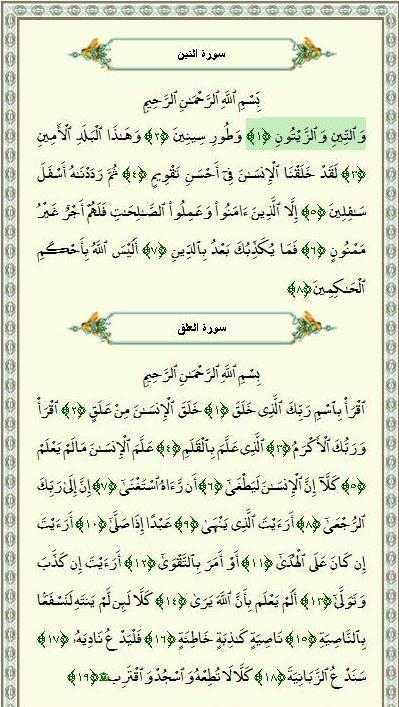 سورة التين
بِسْمِ ٱللَّهِ ٱلرَّحْمَٰنِ ٱلرَّحِيمِ
وَٱلتِّينِ وَٱلزَّيْتُونِ ﴿١﴾ وَطُورِ سِينِينَ ﴿٢﴾ وَهَٰذَا ٱلْبَلَدِ ٱلْأَمِينِ
﴿٣﴾ لَقَدْ خَلَقْنَا ٱلْإِنسَٰنَ فِىٓ أَحْسَنِ تَقْوِيمٍ ﴿٤﴾ ثُمَّ رَدَدْنَٰهُ أَسْفَلَ
سَٰفِلِينَ ﴿٥﴾ إِلَّا ٱلَّذِينَ ءَامَنُوا۟ وَعَمِلُوا۟ ٱلصَّٰلِحَٰتِ فَلَهُمْ أَجْرٌ غَيْرُ
مَمْنُونٍ ﴿٦﴾ فَمَا يُكَذِّبُكَ بَعْدُ بِٱلدِّينِ ﴿٧﴾ أَلَيْسَ ٱللَّهُ بِأَحْكَمِ
ٱلْحَٰكِمِينَ ﴿٨﴾
سورة العلق
بِسْمِ ٱللَّهِ ٱلرَّحْمَٰنِ ٱلرَّحِيمِ
ٱقْرَأْ بِٱسْمِ رَبِّكَ ٱلَّذِى خَلَقَ ﴿١﴾ خَلَقَ ٱلْإِنسَٰنَ مِنْ عَلَقٍ ﴿٢﴾ ٱقْرَأْ
وَرَبُّكَ ٱلْأَكْرَمُ ﴿٣﴾ ٱلَّذِى عَلَّمَ بِٱلْقَلَمِ ﴿٤﴾ عَلَّمَ ٱلْإِنسَٰنَ مَا لَمْ يَعْلَمْ
﴿٥﴾ كَلَّآ إِنَّ ٱلْإِنسَٰنَ لَيَطْغَىٰٓ ﴿٦﴾ أَن رَّءَاهُ ٱسْتَغْنَىٰٓ ﴿٧﴾ إِنَّ إِلَىٰ رَبِّكَ
ٱلرُّجْعَىٰٓ ﴿٨﴾ أَرَءَيْتَ ٱلَّذِى يَنْهَىٰ ﴿٩﴾ عَبْدًا إِذَا صَلَّىٰٓ ﴿١٠﴾ أَرَءَيْتَ
إِن كَانَ عَلَى ٱلْهُدَىٰٓ ﴿١١﴾ أَوْ أَمَرَ بِٱلتَّقْوَىٰٓ ﴿١٢﴾ أَرَءَيْتَ إِن كَذَّبَ
وَتَوَلَّىٰٓ ﴿١٣﴾ أَلَمْ يَعْلَم بِأَنَّ ٱللَّهَ يَرَىٰ ﴿١٤﴾ كَلَّا لَئِن لَّمْ يَنتَهِ لَنَسْفَعًۢا
بِٱلنَّاصِيَةِ ﴿١٥﴾ نَاصِيَةٍ كَٰذِبَةٍ خَاطِئَةٍ ﴿١٦﴾ فَلْيَدْعُ نَادِيَهُۥ ﴿١٧﴾
سَنَدْعُ ٱلزَّبَانِيَةَ ﴿١٨﴾ كَلَّا لَا تُطِعْهُ وَٱسْجُدْ وَٱقْتَرِب۩ ﴿١٩﴾